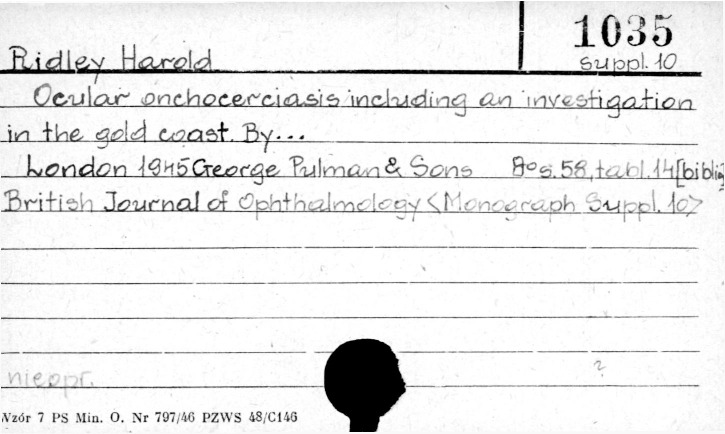 1035
Ridley Harold suppl. 10
Ocular onchocerciasis including an investigation
in the gold coast. By...
London 1945 George Pulman & Sons 8° s. 58, tabl. 14 [biblio]
British Journal of Ophthalmology <Monograph Suppl. 10>
nieopr. ?
Wzór 7 PS Min. O. Nr 797/46 PZWS 48/C146